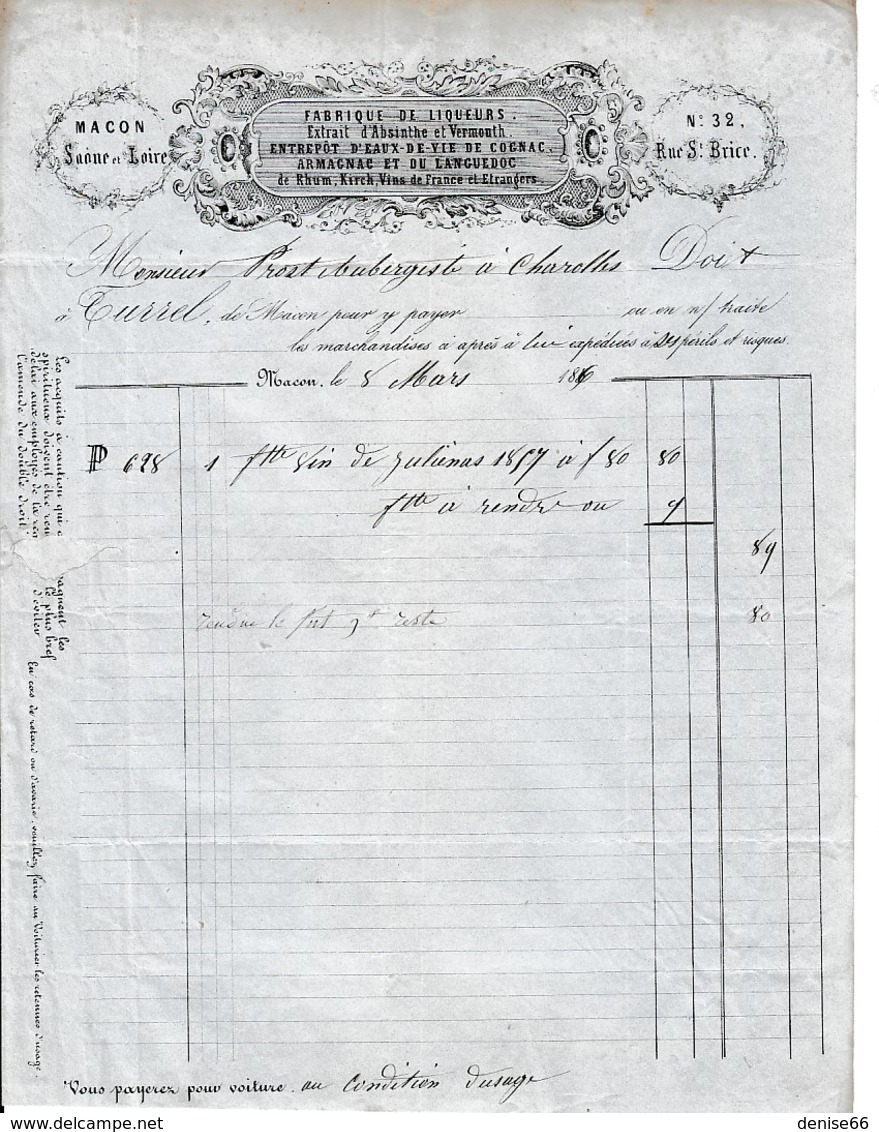 MACON
Saône et Loire
FABRIQUE DE LIQUEURS.
Extrait d'Absinthe et Vermouth.
ENTREPÔT D'EAUX-DE-VIE DE COGNAC,
ARMAGNAC ET DU LANGUEDOC
de Rhum, Kirch, Vins de France et Etrangers.
N° 32.
Rue St Brice.
Monsieur Prost Aubergiste à Charolles Doit
à Turrel, de Macon pour y payer ou en n/ traite
les marchandises ci après à lui expédiées à ses périls et risques.
Macon, le 8 Mars 186
P 628 1 ftte Vin de Juliénas 1857 à f 80 80
ftte à rendre ou 9
89
rendue le fut reste 80
Vous payerez pour voiture. au Condition dusage
Les acquits à caution qui
spiritueux doivent être
délai aux employés de la
l'amende du double droit
agnent les
le plus bref
d'éviter
En cas de retard ou d'avarie, veuillez faire au Voiturier les retenues d'usage.
denise66